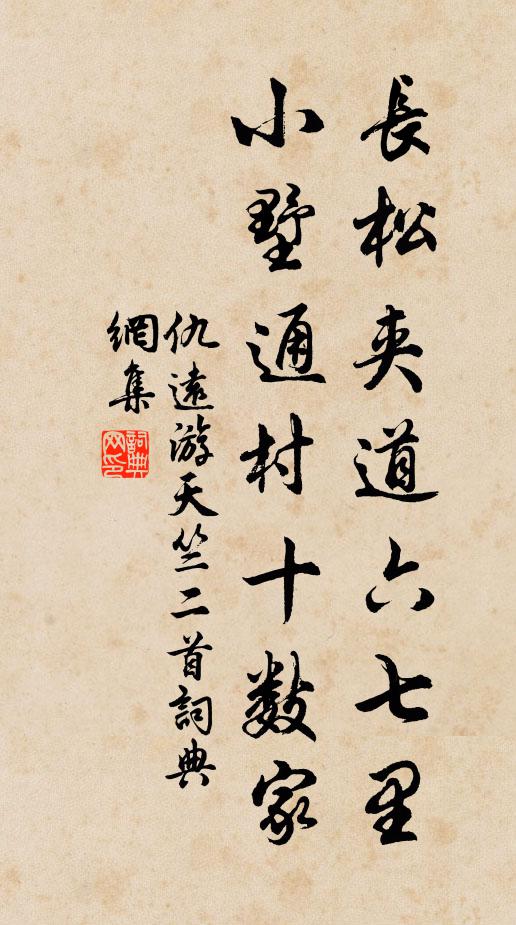 長松夾道六七里
小墅通村十數家
仇遠游天竺二首詞典
網集
詞典
网印